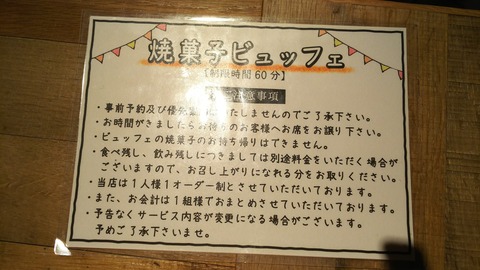 焼菓子ビュッフェ
【制限時間60分】
注意事項
・事前予約及び優先いたしませんのでご了承下さい。
・お時間がきましたらお待ちのお客様へお席をお譲り下さい。
・ビュッフェの焼菓子のお持ち帰りはできません。
・食べ残し、飲み残しにつきましては別途料金をいただく場合が
ございますので、お召し上がりになれる分をお取りください。
・当店は1人様1オーダー制とさせていただいております。
・また、お会計は1組様でおまとめさせていただいております。
・予告なくサービス内容が変更になる場合がございます。
予めご了承下さいませ。